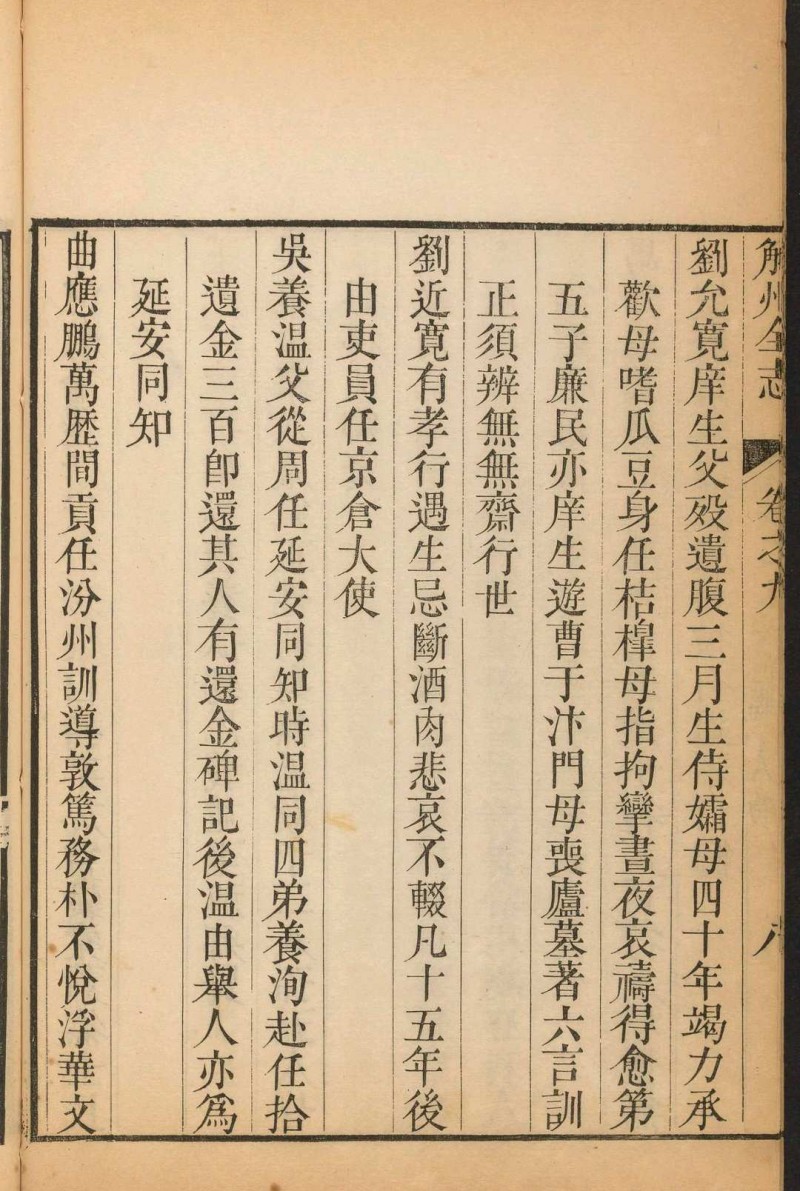 解州全志 卷之九 八
劉允寬庠生父歿遺腹三月生侍孀母四十年竭力承
歡母嗜瓜豆身任桔橰母指拘攣晝夜哀禱得愈第
五子廉民亦庠生遊曹于汴門母喪廬墓著六言訓
正須辨無無齋行世
劉近寬有孝行遇生忌斷酒肉悲哀不輟凡十五年後
由吏員任京倉大使
吳養温父從周任延安同知時温同四弟養洵赴任拾
遺金三百卽還其人有還金碑記後温由舉人亦爲
延安同知
曲應鵬萬歷間貢任汾州訓導敦篤務朴不悅浮華文